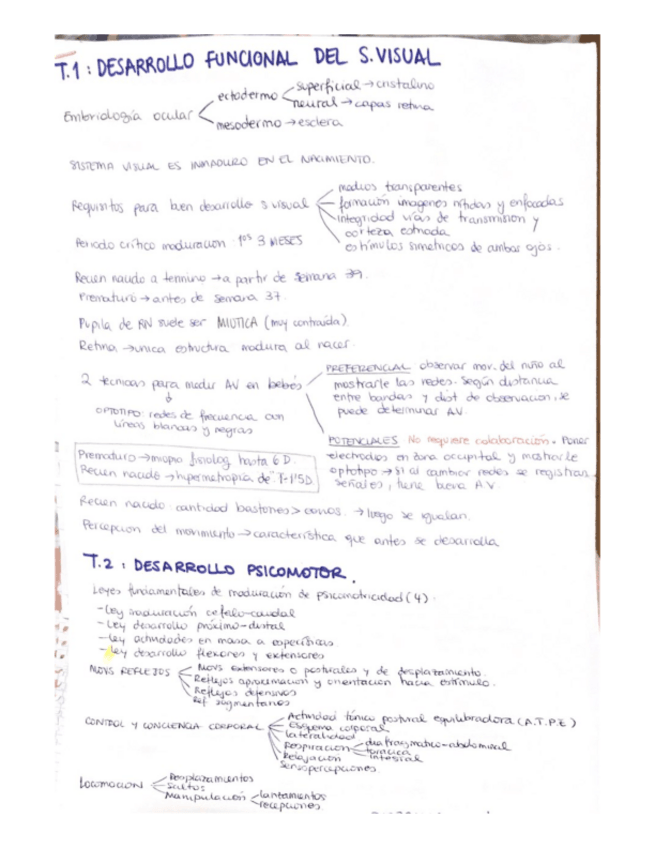 T.1: DESARROLLO FUNCIONAL DEL S.VISUAL
Embriología ocular
ectodermo
superficial → cristalino
neural → capas retina
mesodermo → esclera
SISTEMA VISUAL ES INMADURO EN EL NACIMIENTO.
Requisitos para buen desarrollo s visual
medios transparentes
formación imagenes nítidas y enfocadas
integridad vías de transmision y
corteza estriada
estímulos simetricos de ambos ojos.
Periodo crítico maduracion: 1os 3 MESES
Recien nacido a termino → a partir de semana 39.
Prematuro → antes de semana 37.
Pupila de RN suele ser MIOTICA (muy contraída)
Retina → unica estructura madura al nacer.
2 tecnicas para medir AV en bebés
OPTOTIPO: redes de frecuencia con
líneas blancas y negras
PREFERENCIAL observar mov. del niño al
mostrarle las redes. Según distancia
entre bandas y dist de observacion, se
puede determinar AV.
POTENCIALES No requiere colaboración. Poner
electrodos en zona occipital y mostrarle
optotipo → si al cambiar redes se registran
señales, tiene buena A.V.
Prematuro → miopia fisiolog hasta 6 D.
Recien nacido → hipermetropia de
Recien nacido: cantidad bastones > conos. → luego se igualan.
Percepcion del movimiento → característica que antes se desarrolla
T.2: DESARROLLO PSICOMOTOR.
Leyes fundamentales de maduración de psicomotricidad (4):
- Ley maduración cefalo-caudal
- Ley desarrollo próximo-distal
- Ley actividades en masa a específicas
- Ley desarrollo flexores y extensores
MOVS REFLEJOS
Movs extensores o posturales y de desplazamiento.
Reflejos aproximacion y orientación hacia estímulo.
Reflejos defensivos
Ref segmentarios
CONTROL Y CONCIENCIA CORPORAL
Actividad tónico postural equilibradora (A.T.P.E)
Esquema corporal
Lateralidad
Respiracion
diafragmatico-abdominal
torácica
integral
Relajación
Sensopercepciones.
LOCOMOCION
Desplazamientos
Saltos
Manipulación
lanzamientos
recepciones.